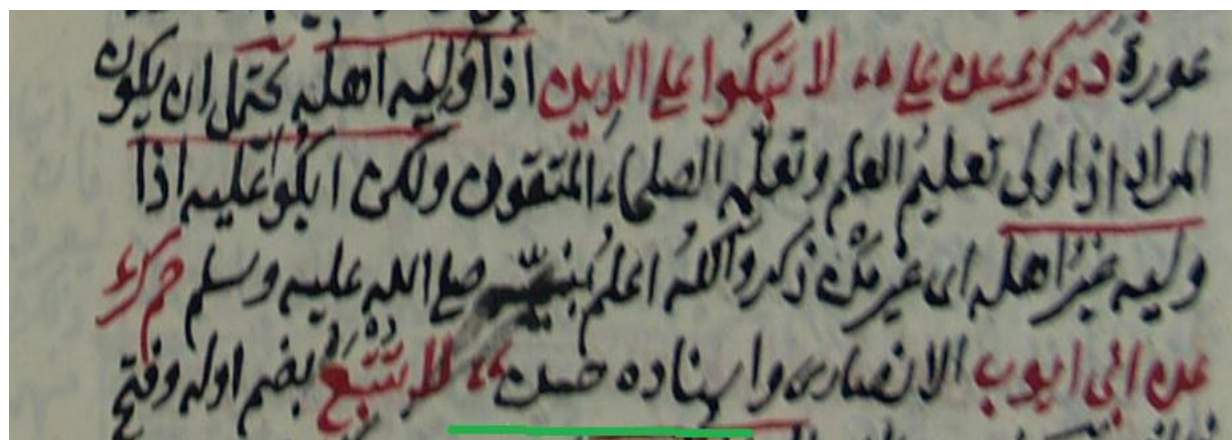 عورة د ك عن علي لا تبكوا على الدين اذا وليه اهله يحتمل ان يكون
المراد اذا ولى تعليم العلم وتعلمه الصلحاء المتقون ولكن ابكوا عليه اذا
وليه غير اهله اى غير من ذكر والله اعلم بنبيه صلى الله عليه وسلم حم ك
عن ابى ايوب الانصارى واسناده حسن لا تتبع بضم اوله وفتح